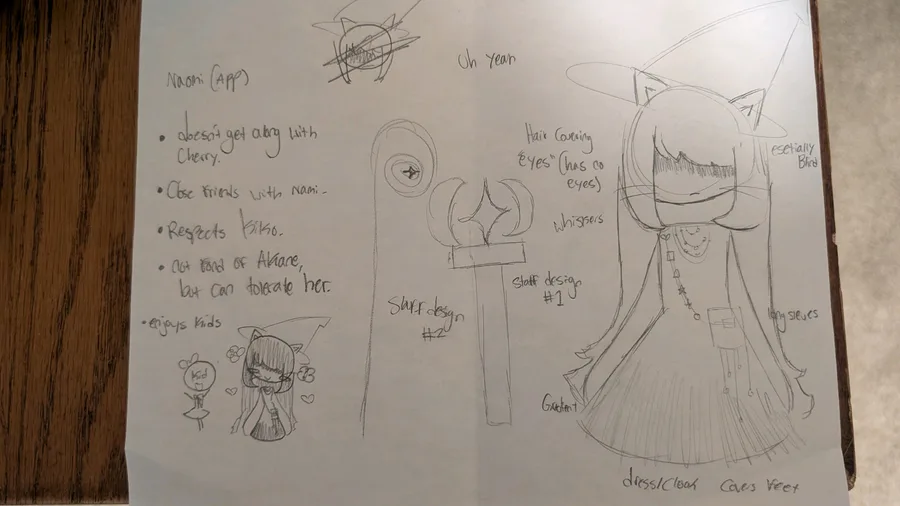 Uh yeah
Naomi (App)
• doesn't get along with
Cherry.
• Close friends with nami.
• Respects
• not fond of Akane,
but can tolerate her.
• enjoys kids
kid
Staff design
#2
staff design
#1
Hair Covering
"eyes" (has no
eyes)
whispers
esetially
Blind
long sleves
Gradient
dress/Cloak Covers Feet